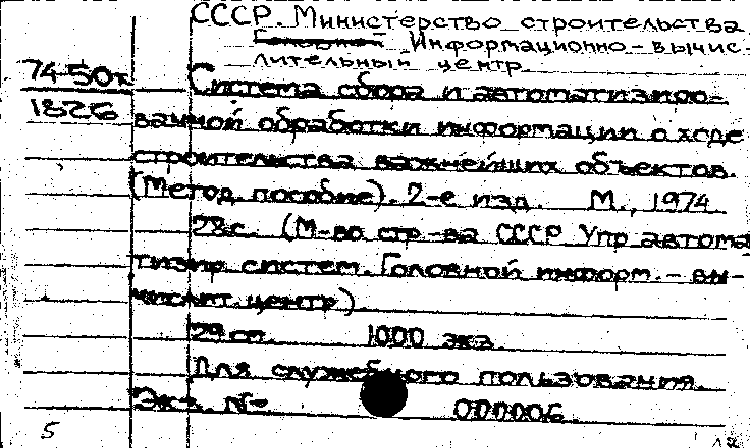 СССР. Министерство строительства
Головной Информационно-вычис-
лительный центр
74-50к Система сбора и автоматизиро-
1326 ванной обработки информации о ходе
строительства важнейших объектов.
(Метод. пособие). 2-е изд. М., 1974
28с. (М-во стр-ва СССР Упр автома
тизир систем. Головной информ.-вы-
числит. центр)
29 см. 1000 экз.
Для служебного пользования.
Экз. № 000006
5